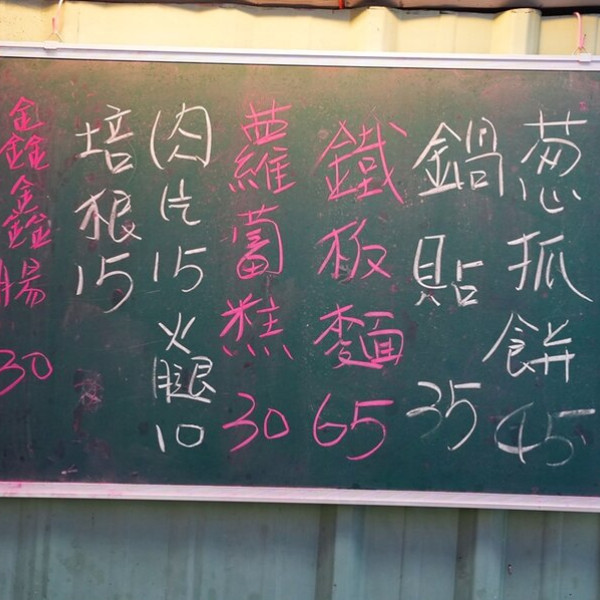 葱抓餅 45
鍋貼 35
鐵板麵 65
蘿蔔糕 30
肉片 15
火腿 10
培根 15
鑫鑫腸 30